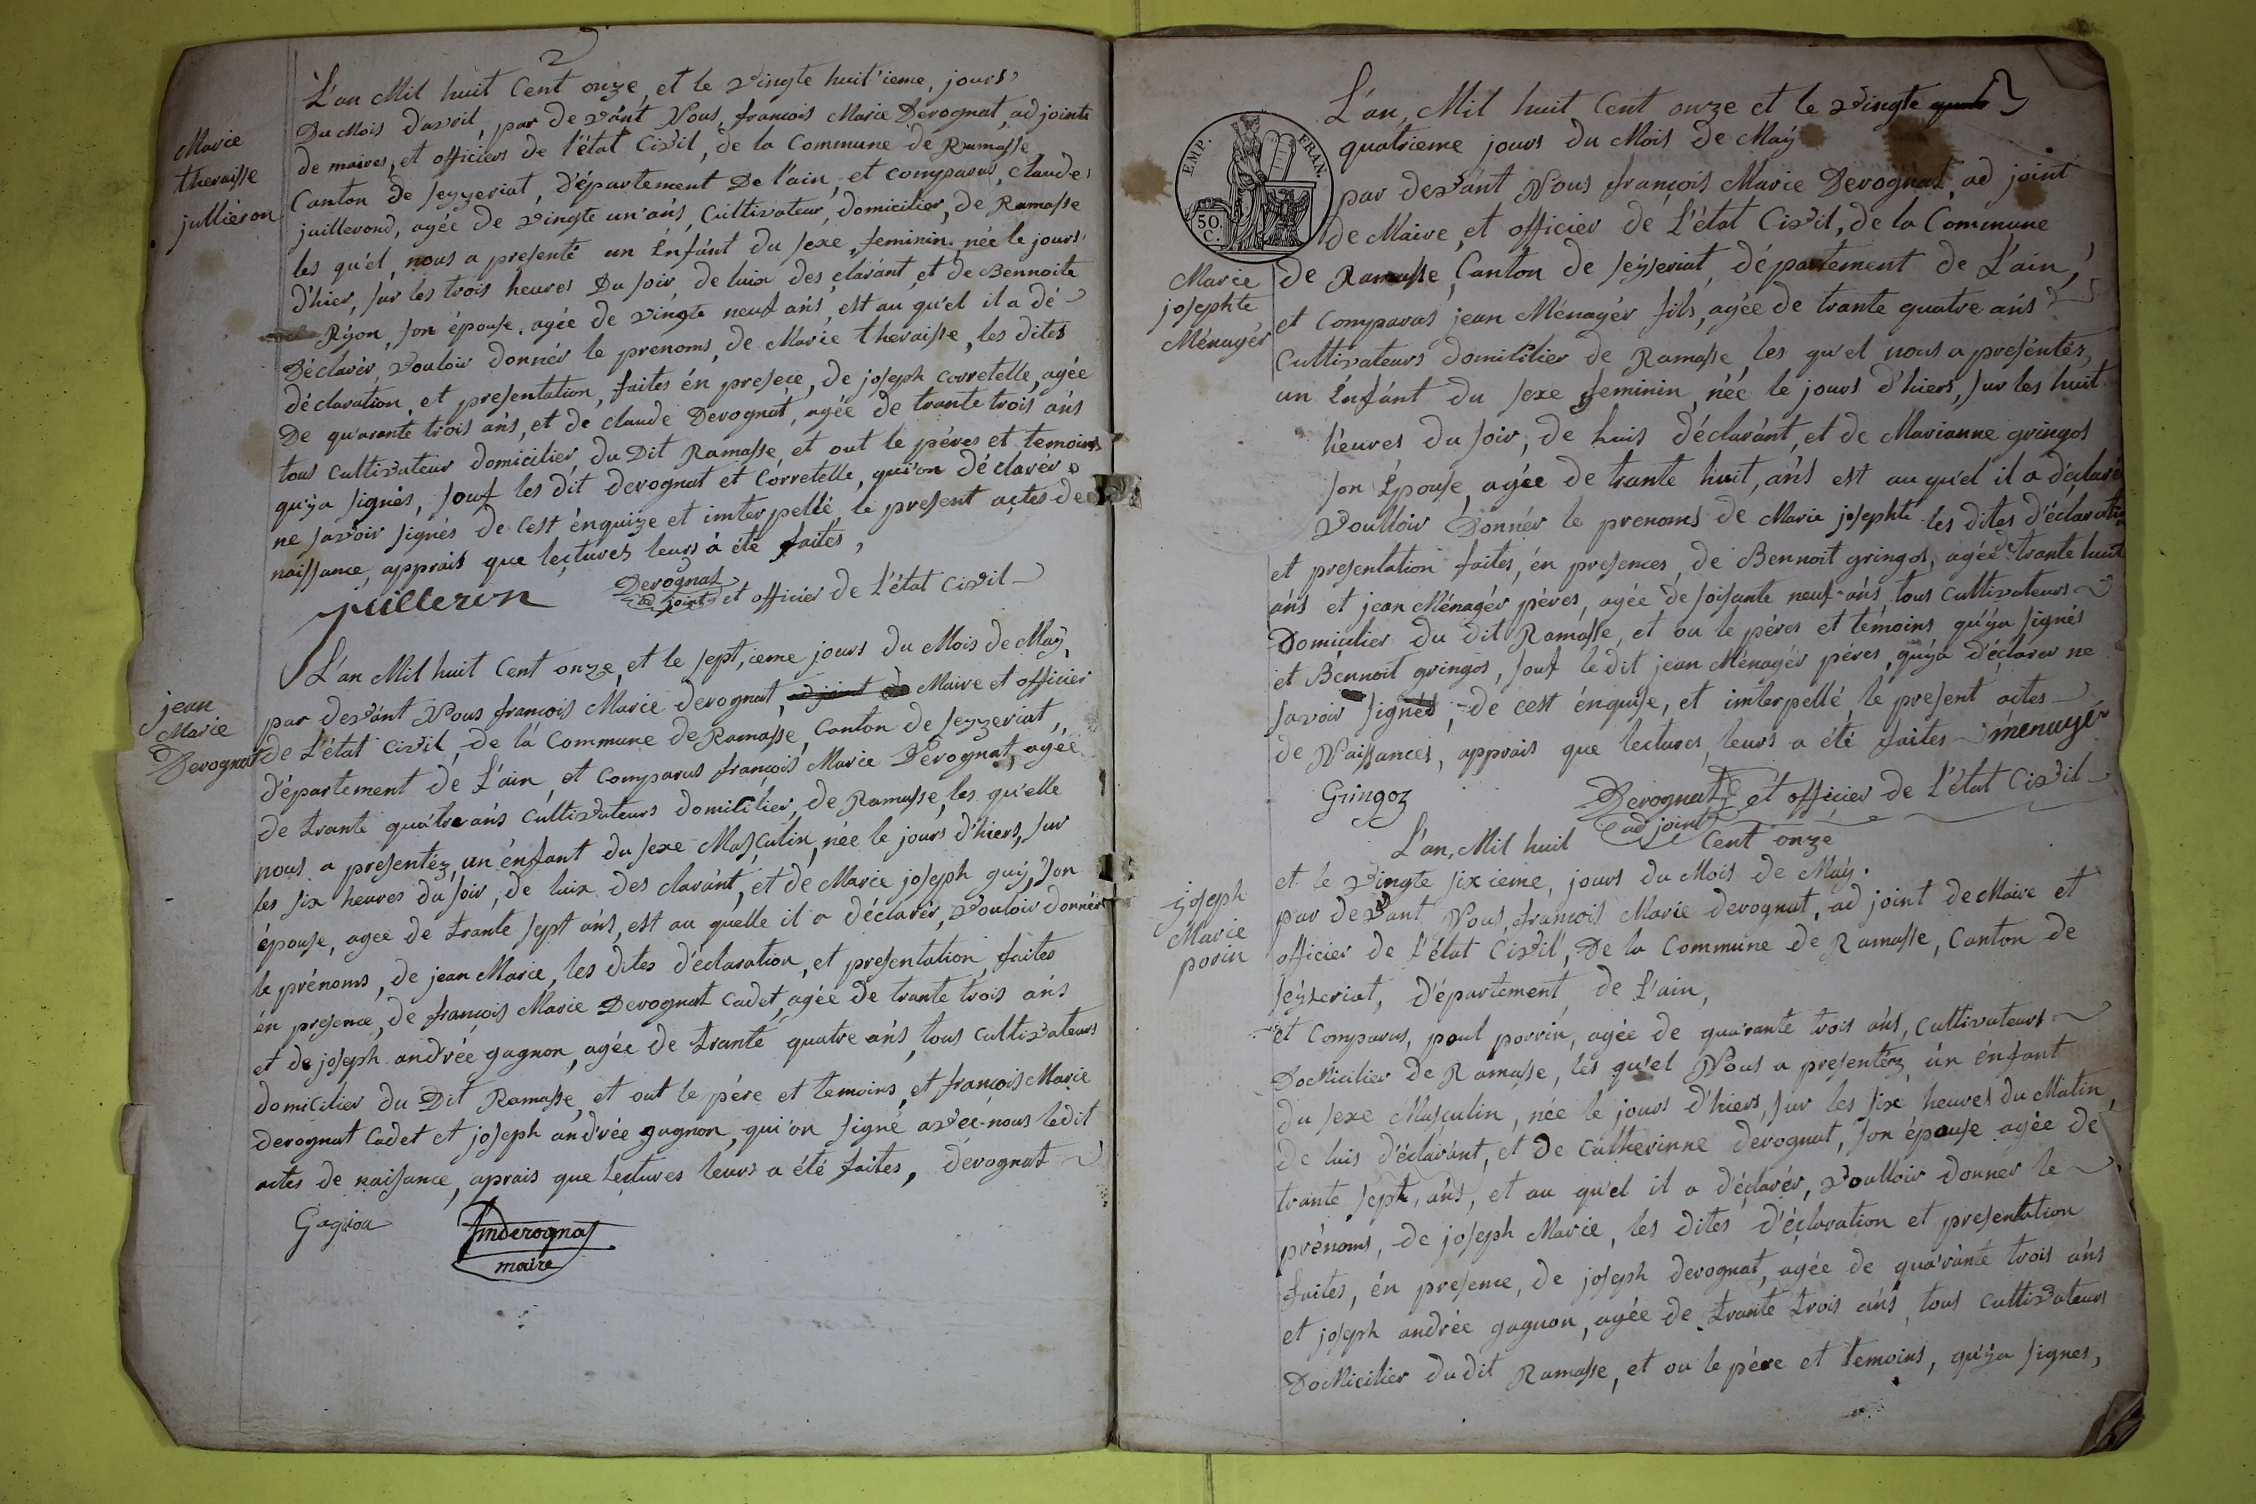 2
L'an Mil huit Cent onze, et le vingte huit'ieme, jours
Du Mois d'avril, par devant Nous, francois Marie Derognat, adjointe
de maires, et officiers de l'état Civil, de la Commune de Ramasse
Canton de seyzeriat, d'épartement De l'ain, et comparus, claude
juillerond, agée de vingte un'ans, Cultivateur, domicilier, de Ramasse
les qu'el, nous a presenté un Enfant du sexe, feminin, née le jours
d'hier, sur les trois heures Du soir, de luix des,clarant, et de Bennoite
Ryon, son épouse, agée de vingte neuf ans, est au qu'el il a dé
Déclarér, vouloir donnér le prenoms, de Marie theraisse, les dites
déclaration, et presentation, faites én presece, de joseph Corretelle, agée
De qu'arante trois ans, et de claude Derognat, agée de trante trois ans
tous Cultivateur domicilier, du Dit Ramasse, et out le péres et temoins
qu'ya signés, souf les dit derognat et Correteille, qui'on déclarér
ne savoir signés de Cest énquize et imterpellé, le present actes de
naissance, apprais que lectures leurs à été faites,
Marie
theraisse
julliéron
juilleron
Derognat
ad joint et officier de l'état Civil
L'an Mil huit Cent onze, et le sept,ieme jours du Mois de May,
par devant Nous francois Marie derognat, Maire et officier
de L'état Civil, de la Commune de Ramasse, Canton de seyzeriat,
d'épartement de L'ain, et comparus françois Marie Derognat, agée
de trante quatre ans Cultivateurs domicilier, de Ramasse, les qu'elle
nous a presentéz, un énfant du sexe Masculin, née le jours d'hiers, sur
les six heures du soir, de luix des clarant, et de Marie joseph guy, son
épouse, agee de trante sept ans, est au quelle il a déclarér, vouloir donnér
le prénoms, de jean Marie, les dites d'éclaration, et presentation, faites
én presence, de francois Marie Derognat Cadet, agée de trante trois ans
et de joseph andrée gagnon, agée de trante quatre ans, tous Cultivateurs
domicilier du Dit Ramasse, et out le pére et temoins, et francois Marie
derognat Cadet et joseph andrée gagnon, qui'on signé avec nous ledit
actes de naisance, aprais que lectures leurs a été faites, derognat
jean
Marie
Derognat
Gagnon
fmderognat
maire
L'an, Mil huit Cent onze et le vingte
quatrieme jours du Mois de May
par devant Nous françois Marie Derognat, ad joint
de Maire, et officier de L'état Civil, de la Commune
de Ramasse, Canton de seyseriat, département de L'ain,
et Comparus jean Ménagér fils, agée de trante quatre ans
Cultivateurs domicilier de Ramasse, les qu'el nous a presentéz,
un Enfant du sexe feminin, née le jours d'hiers, sur les huit
heures du soir, de luis déclarant, et de Marianne gringos
son Epouse, agée de trante huit, ans est au qu'el il a déclaré
voulloir Donnér le prenoms de Marie josephte les dites d'éclaration
et presentation faites, én presences, de Bennoit gringos, agée de trante huit
ans et jean Ménagér péres, agée de soisante neuf ans, tous Cultivateurs
Domicilier du dit Ramasse, et ou le péres et témoins qu'ya signés
et Bennoit gringos, souf le dit jean Ménagér péres, qu'ya d'éclarer ne
savoir signés, de cest énquise, et imterpellé le present actes
de Naissances, apprais que lectures, leurs a été faites ménagér
EMP. FRAN.
50.
C.
Marie
josephte
Ménagér
Gringoz
Derognat et officier de L'état Civil
ad joint
L'an, Mil huit Cent onze
et le vingte six ieme, jours du Mois de May.
par devant Nous, francois Marie derognat, ad joint de Maire et
officier de l'état Civil, De la Commune de Ramasse, Canton de
seyzeriat, d'épartement de L'ain,
et Comparus, paul porrin, agée de quarante trois ans, Cultivateurs
Domicilier de Ramasse, les qu'el Nous a presentérz un énfant
du sexe Masculin, née le jours d'hiers, sur les six heures du Matin,
de luis d'éclarant, et De Catherinne derognat, son épouse agée de
trante sept, ans, et au qu'el il a d'éclarér, voulloir donnér le
prénoms, de joseph Marie, les dites d'éclaration et presentation
faites, én presence, de joseph derognat, agée de qua'rante trois ans
et joseph andrée gagnon, agée de trante trois ans, tous Cultivateurs
Domicilier du dit Ramasse, et ou le pére et temoins, qu'ya signes,
joseph
Marie
porin